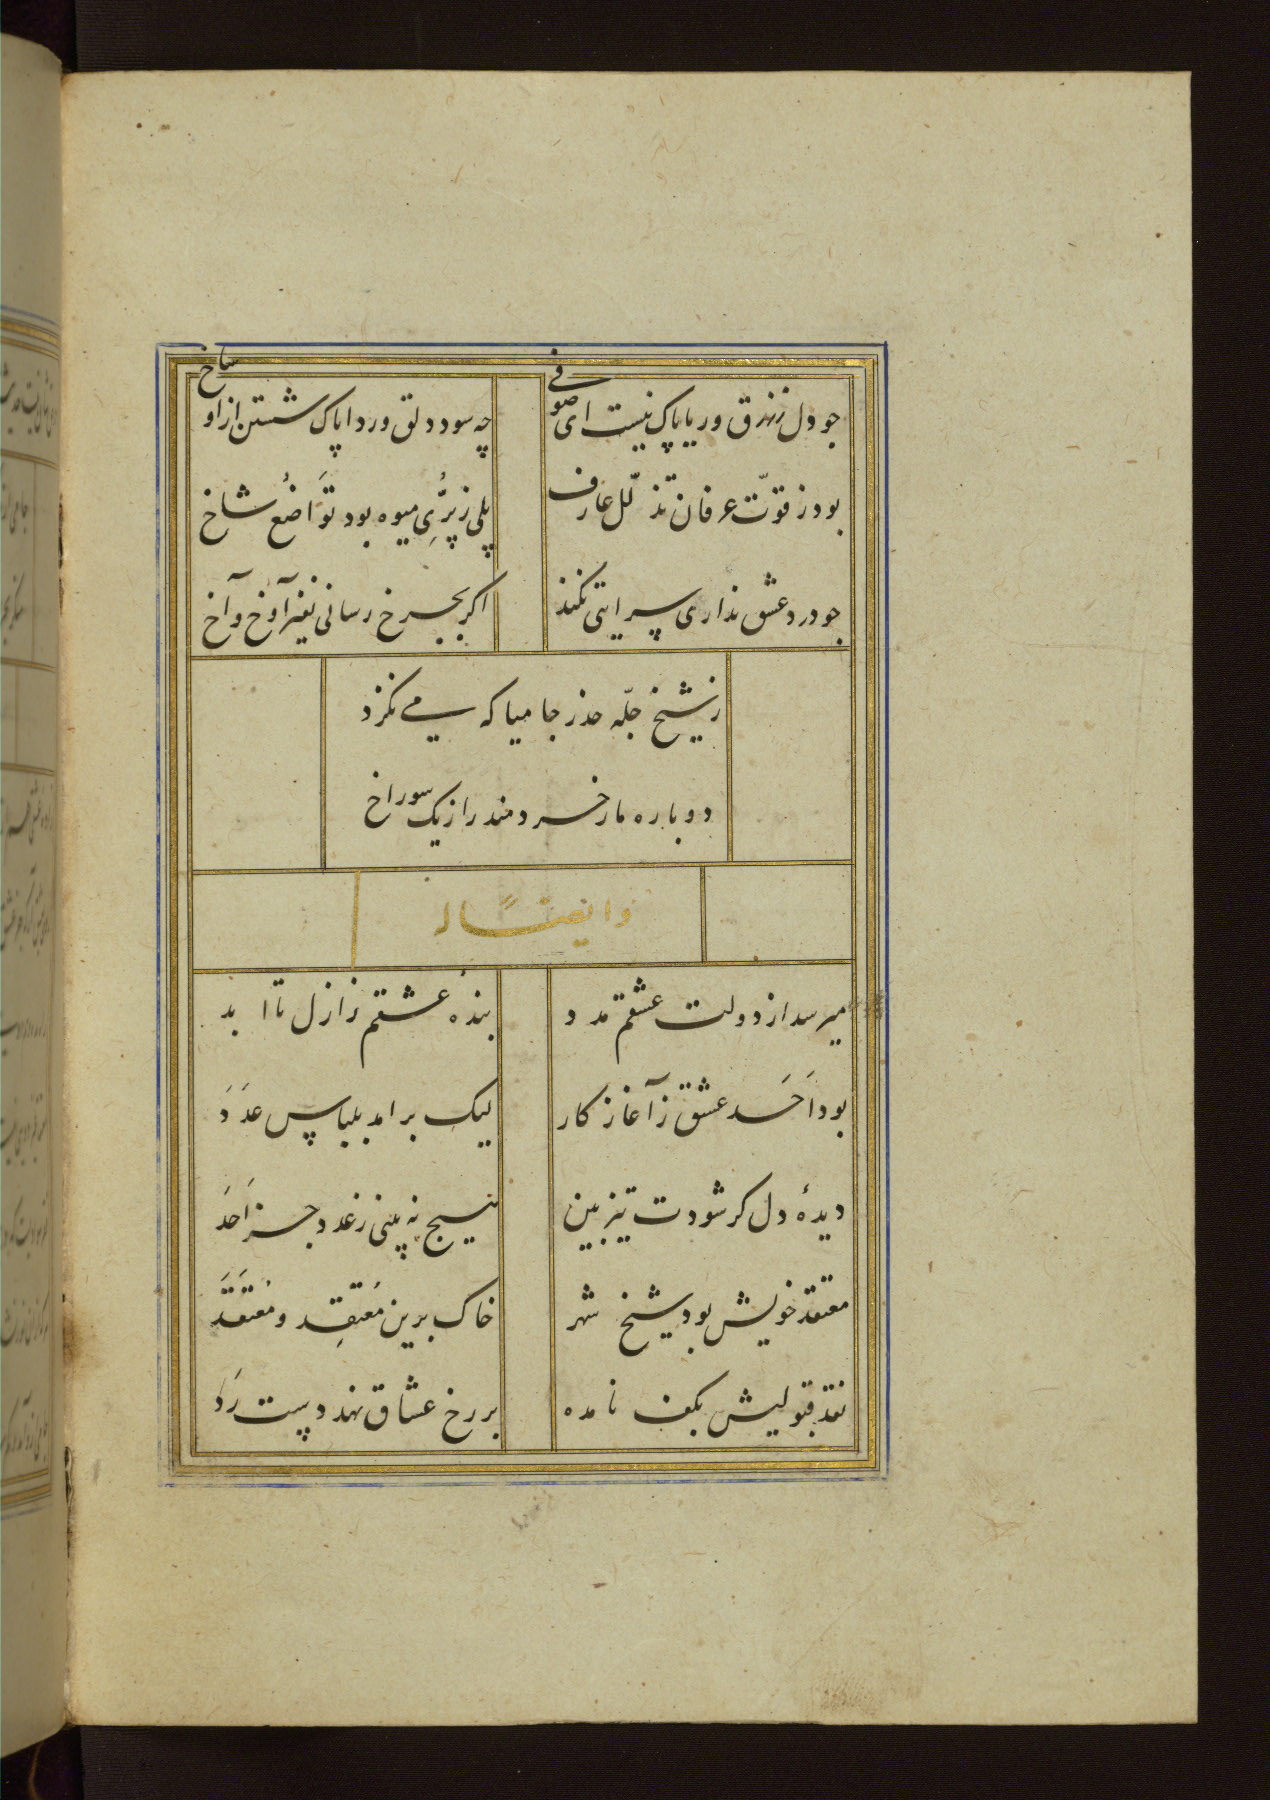 جو دل زنهرق و ریا پاک نیست ای صوفی
چه سود دلق و ردا پاک شستن از اوساخ
بود ز قوّت عرفان تذلّل عارف
بلی ز پُرِّی میوه بود تواضُع شاخ
جو درد عشق نداری سرایتی نکند
اکر بجرخ رسانی نفیر آوخ و آخ
ز شیخ جلّه حذر جامیا که می نکزد
دوباره مار خردمند را ز یک سوراخ
وایضاً له
میرسد از دولت عشقم مدد
بندهٔ عشقم ز ازل تا ابد
بود اَحَد عشق ز آغاز کار
لیک برامد بلباس عَدَد
دیدهٔ دل کر شودت تیزبین
هیچ نه بینی ز عدد جز اَحَد
معتقد خویش بود شیخ شهر
خاک برین مُعتقِد و مُعتَقَد
نقد قبولیش بکف نامده
بر رخ عشاق نهد دست رَد